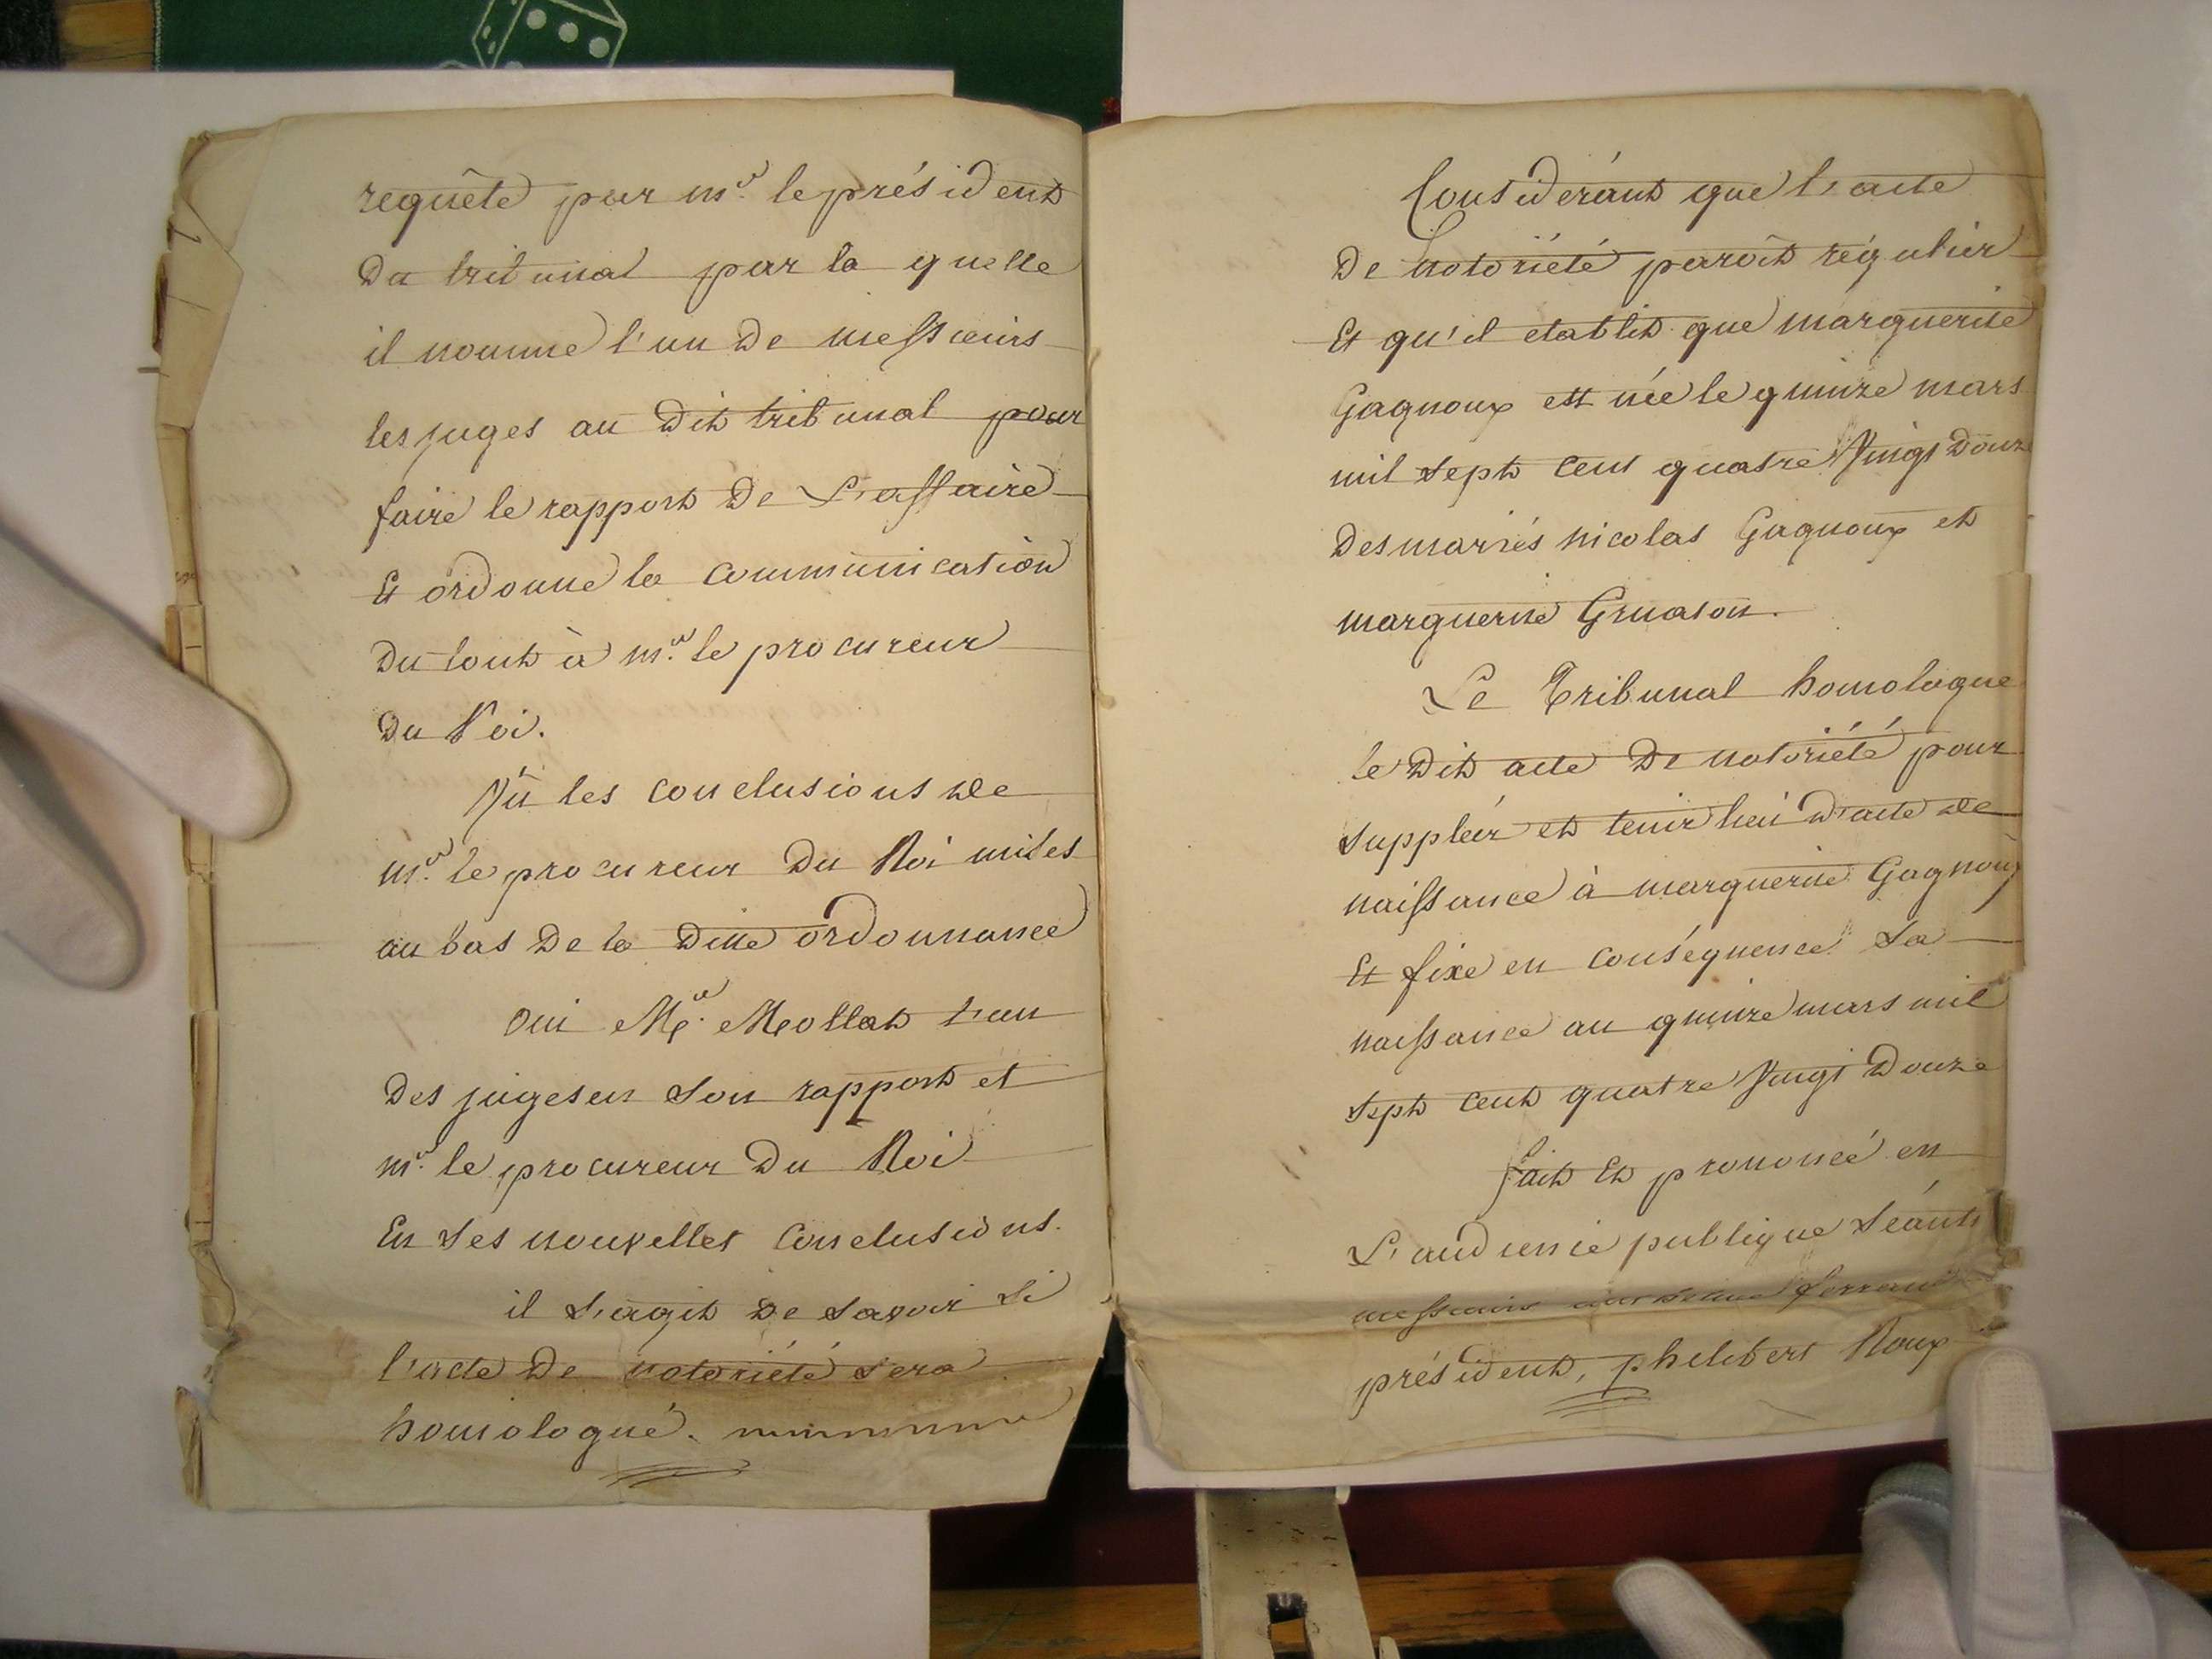 requête par mr. le président
Du tribunal par la quelle
il nomme l'un De messieurs
les juges au Dit tribunal pour
faire le rapport De L'affaire
Et ordonne la communication
Du tout à mr. le procureur
Du Roi.
Vû les conclusions de
mr. le procureur Du Roi mises
au bas De la Ditte ordonnance
Oui Mr. Mollat l'un
Des juges en Son rapport et
mr. le procureur Du Roi
En Ses nouvelles Conclusions.
il S'agit De Savoir Si
l'acte De notoriété Sera
homologué.
Considérant que l'acte
De notoriété paroit régulier
Et qu'il etablit que marguerite
Gagnoux est née le quinze mars
mil Sept Cent quatre Vingt Douze
Des mariés nicolas Gagnoux et
marguerite
Le Tribunal homologue
le Dit acte De notoriété pour
Suppléér et tenir lieu D'acte de
naissance à marguerite Gagnoux
Et fixe en Conséquence Sa
naissance au quinze mars mil
Sept Cent quatre Vingt Douze
fait Et prononcé en
L'audience publique Séants
messieurs ferrand
président, philibert Roux